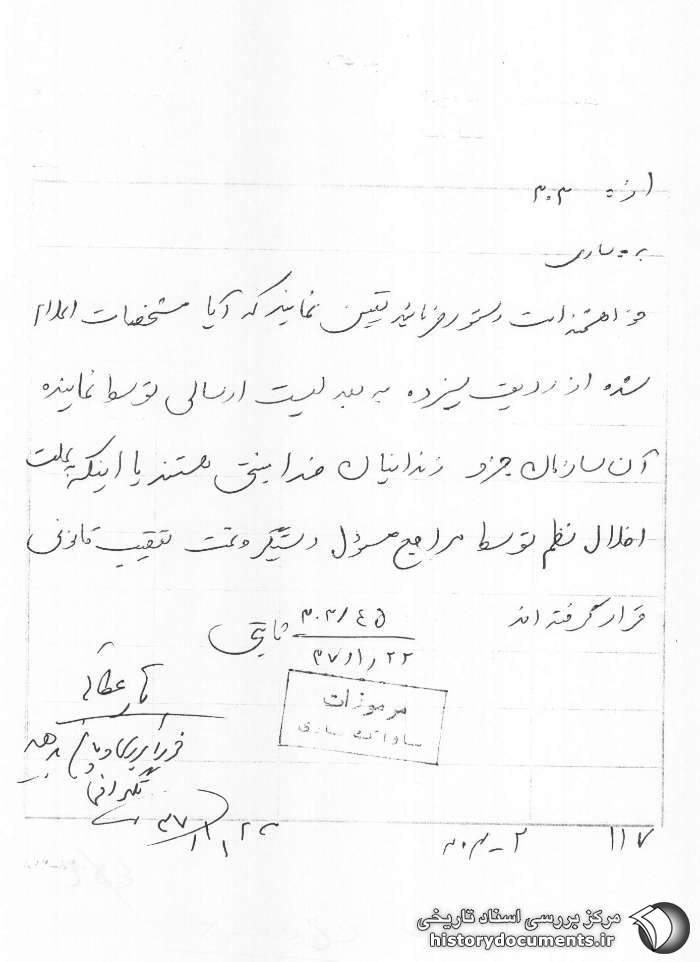 از : ۳۰۳
به : ساری
خواهشمند است دستور فرمائید تعیین نمایند که آیا مشخصات اعلام
شده از ردیف سیزده به بعد لیست ارسالی توسط نماینده
آن سازمان جزو زندانیان ضد امنیتی هستند یا اینکه بعلت
اخلال نظم توسط مراجع مسئول دستگیر و تحت تعقیب قانونی
قرار گرفته اند
۳۰۳/٤٥ ثابتی
۲۲/۱۱/۳۷
مرموزات
ساواک ساری
فورا بررسی و
تلگرافی
۳۷/۱۱/۲۳
۱۱۷
۳۰۳-۲
مرکز بررسی اسناد تاریخی
historydocuments.ir